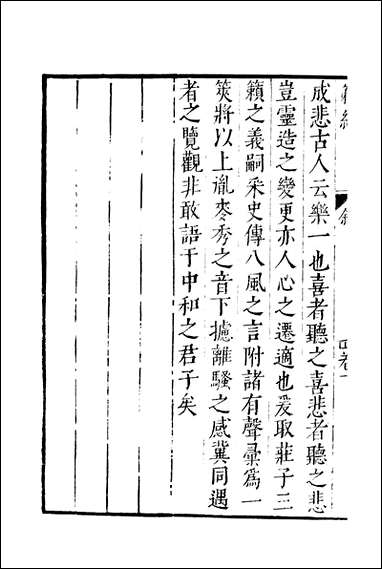 籟紀
敘
成悲古人云樂一也喜者聽之喜悲者聽之悲
豈靈造之變更亦人心之遷適也爰取莊子三
籟之義嗣采史傳八風之言附諸有聲彙爲一
筴將以上胤麥秀之音下攄離騷之感冀同遇
者之覽觀非敢語于中和之君子矣